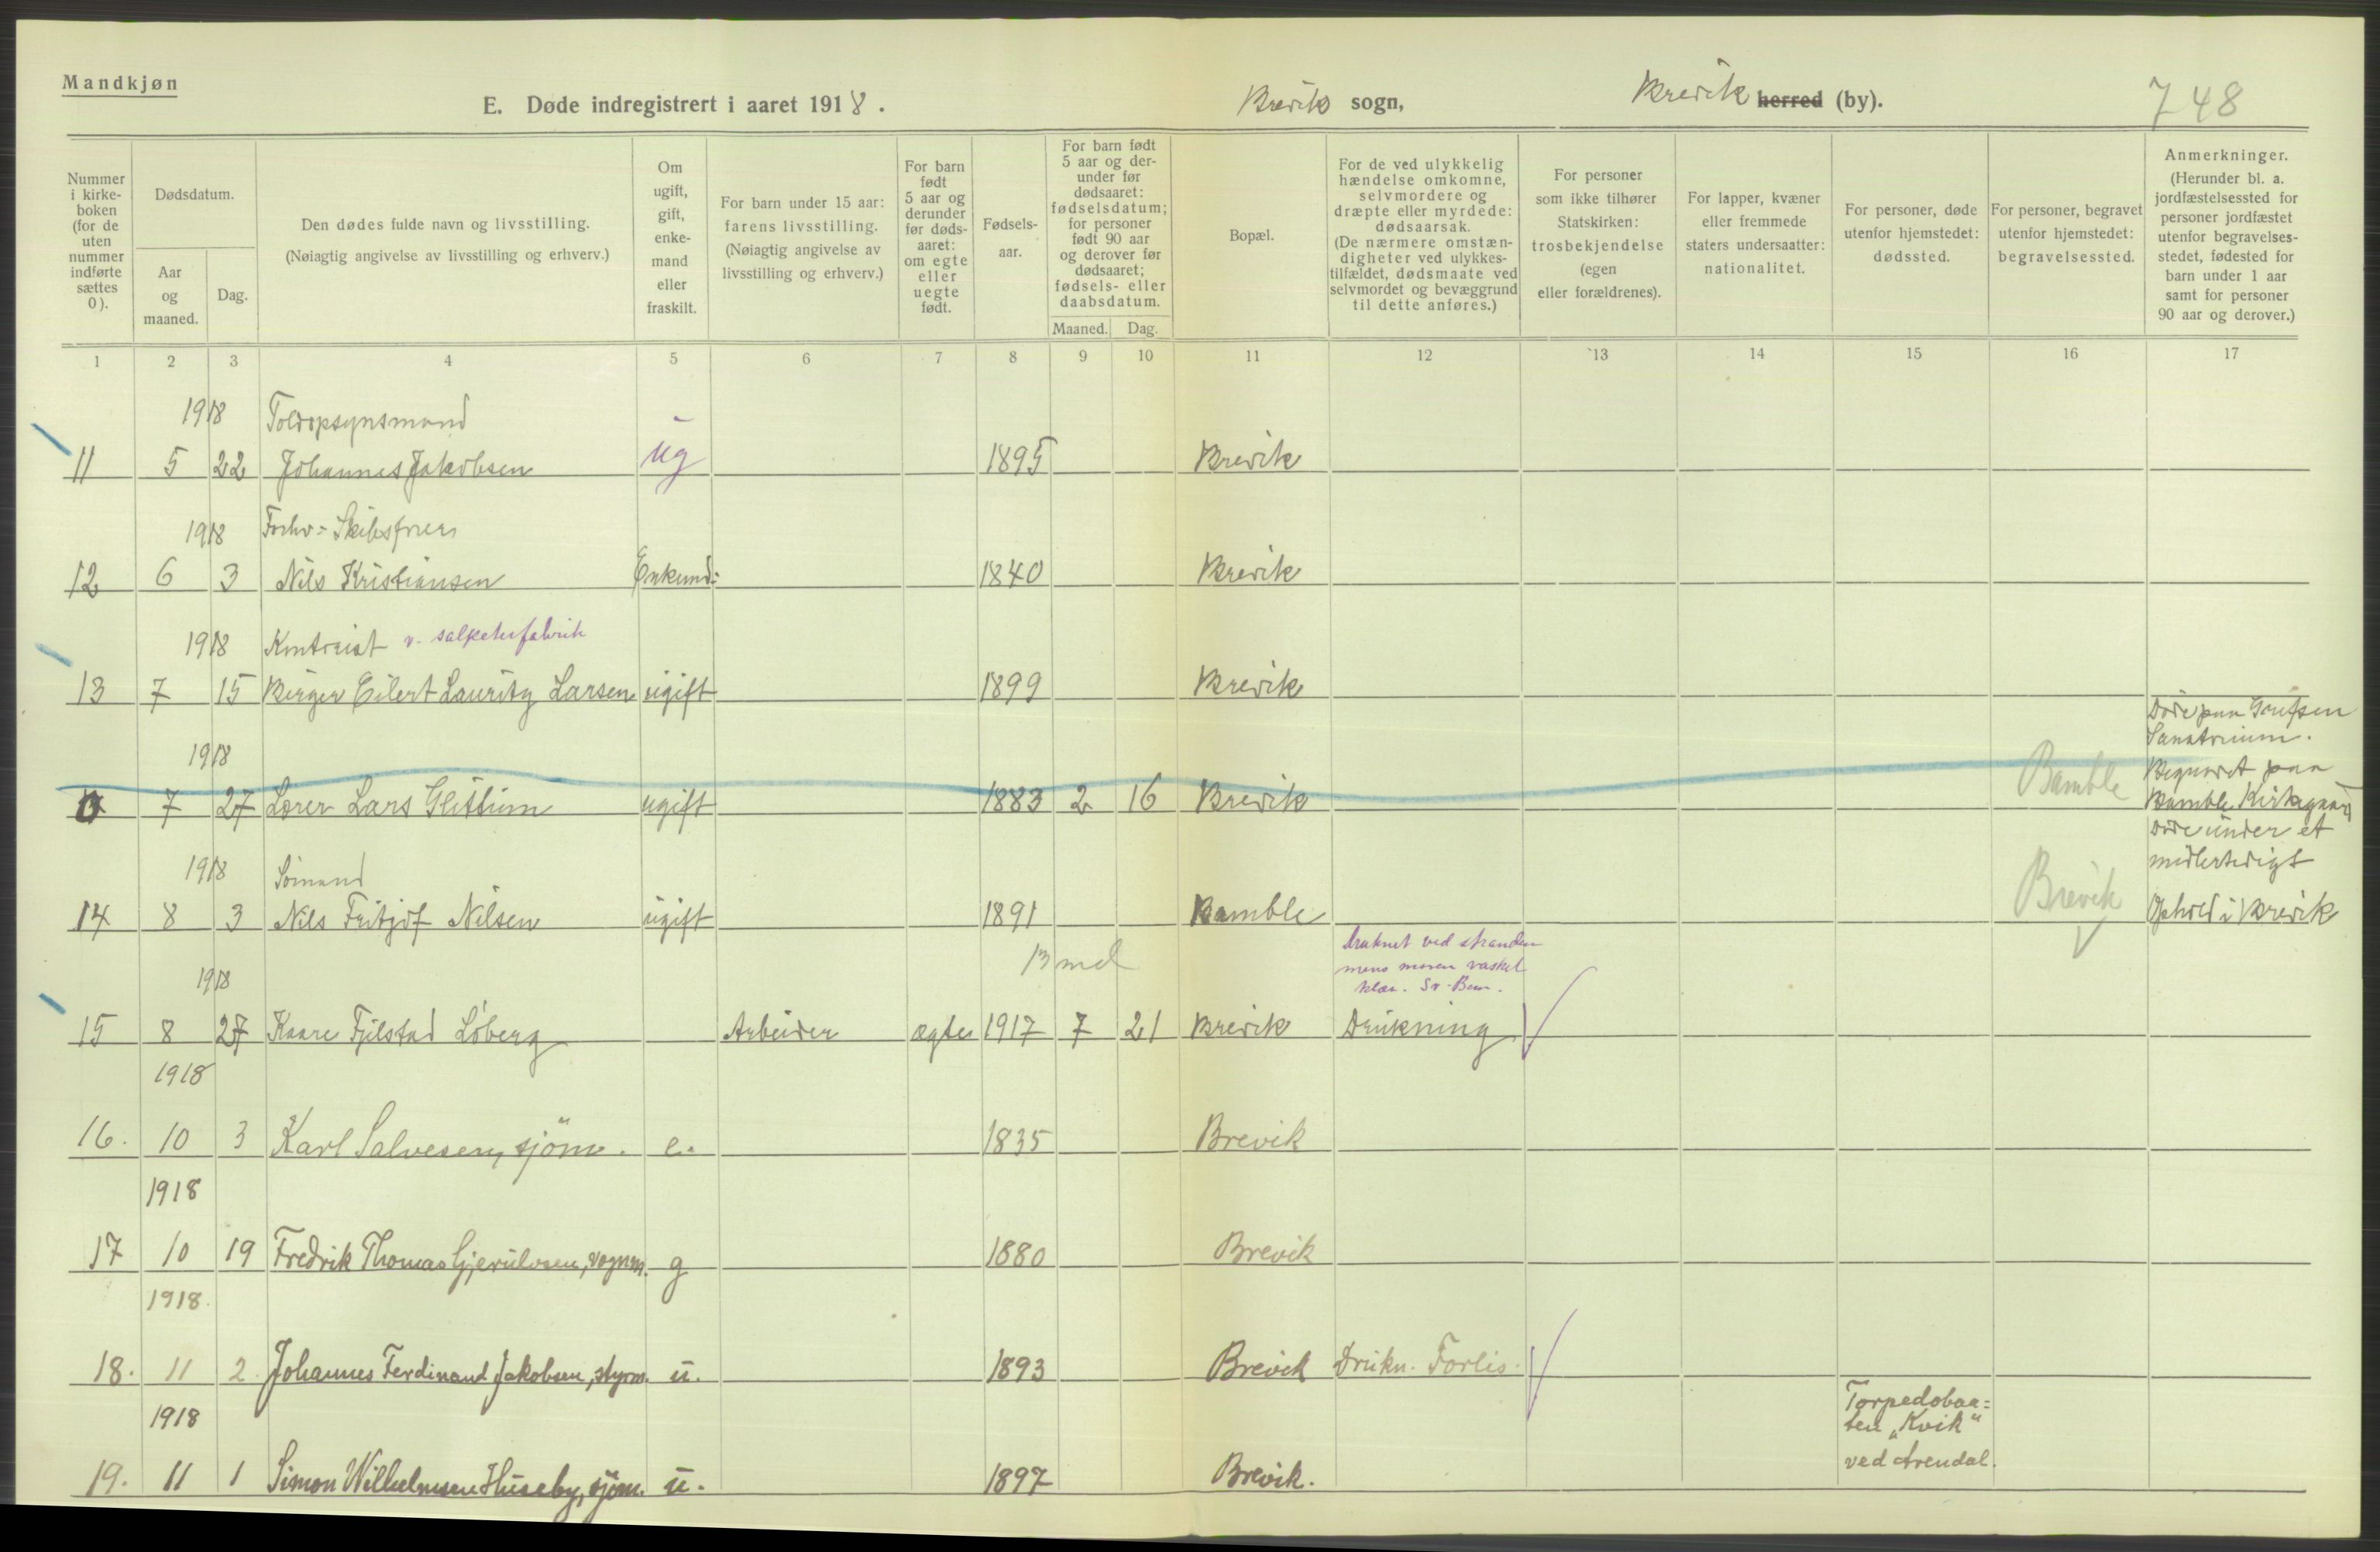 Mandkjøn
E. Døde indregistrert i aaret 1918.
Brevik sogn,
Brevik herred (by).
748
Nummer i kirke-boken (for de uten nummer indførte sættes 0).
Dødsdatum.
Aar og maaned.
Dag.
Den dødes fulde navn og livsstilling.
(Nøiagtig angivelse av livsstilling og erhverv.)
Om ugift, gift, enke-mand eller fraskilt.
For barn under 15 aar: farens livsstilling.
(Nøiagtig angivelse av livsstilling og erhverv.)
For barn født 5 aar og derunder før døds-aaret: om egte eller uegte født.
Fødsels-aar.
For barn født 5 aar og der-under før dødsaaret: fødselsdatum; for personer født 90 aar og derover før dødsaaret; fødsels- eller daabsdatum.
Maaned.
Dag.
Bopæl.
For de ved ulykkelig hændelse omkomne, selvmordere og dræpte eller myrdede: dødsaarsak.
(De nærmere omstæn-digheter ved ulykkes-tilfældet, dødsmaate ved selvmordet og bevæggrund til dette anføres.)
For personer som ikke tilhører Statskirken: trosbekjendelse (egen eller forældrenes).
For lapper, kvæner eller fremmede staters undersaatter: nationalitet.
For personer, døde utenfor hjemstedet: dødssted.
For personer, begravet utenfor hjemstedet: begravelsessted.
Anmerkninger.
(Herunder bl. a. jordfæstelsessted for personer jordfæstet utenfor begravelses-stedet, fødested for barn under 1 aar samt for personer 90 aar og derover.)
1 2 3 4 5 6 7 8 9 10 11 12 13 14 15 16 17
1918 Toldopsynsmand
11 5 22 Johannes Jakobsen ug 1895 Brevik
1918 Forhv. Skibsfører
12 6 3 Nils Kristiansen Enkemd: 1840 Brevik
1918 Kontorist v. salpeterfabrik
13 7 15 Birger Eilert Lauritz Larsen ugift 1899 Brevik
Døde paa Grefsen
Sanatorium.
1918
Begravet paa
0 7 27 Lærer Lars Glittum ugift 1883 2 16 Brevik Bamble Bamble Kirkegaard
Døde under et
1918 Sømand
midlertidigt
14 8 3 Nils Fritjof Nilsen ugift 1891 Bamble Brevik Ophold i Brevik
13 md
druknet ved stranden
mens moren vasket
klær. Sv. Bem.
1918
15 8 27 Kaare Fjelstad Löberg Arbeider ægte 1917 7 21 Brevik Drukning
1918
16. 10 3 Karl Salvesen, sjöm. e. 1835 Brevik
1918
17 10 19 Fredrik Thomas Gjerulvsen, vognm. g 1880 Brevik
1918.
18. 11 2. Johannes Ferdinand Jakobsen, styrm. u. 1893 Brevik Drukn. Forlis.
1918
Torpedobaa=
ten „Kvik“
ved Arendal.
19. 11 1 Simon Wilhelmsen Huseby, sjöm. u. 1897 Brevik.